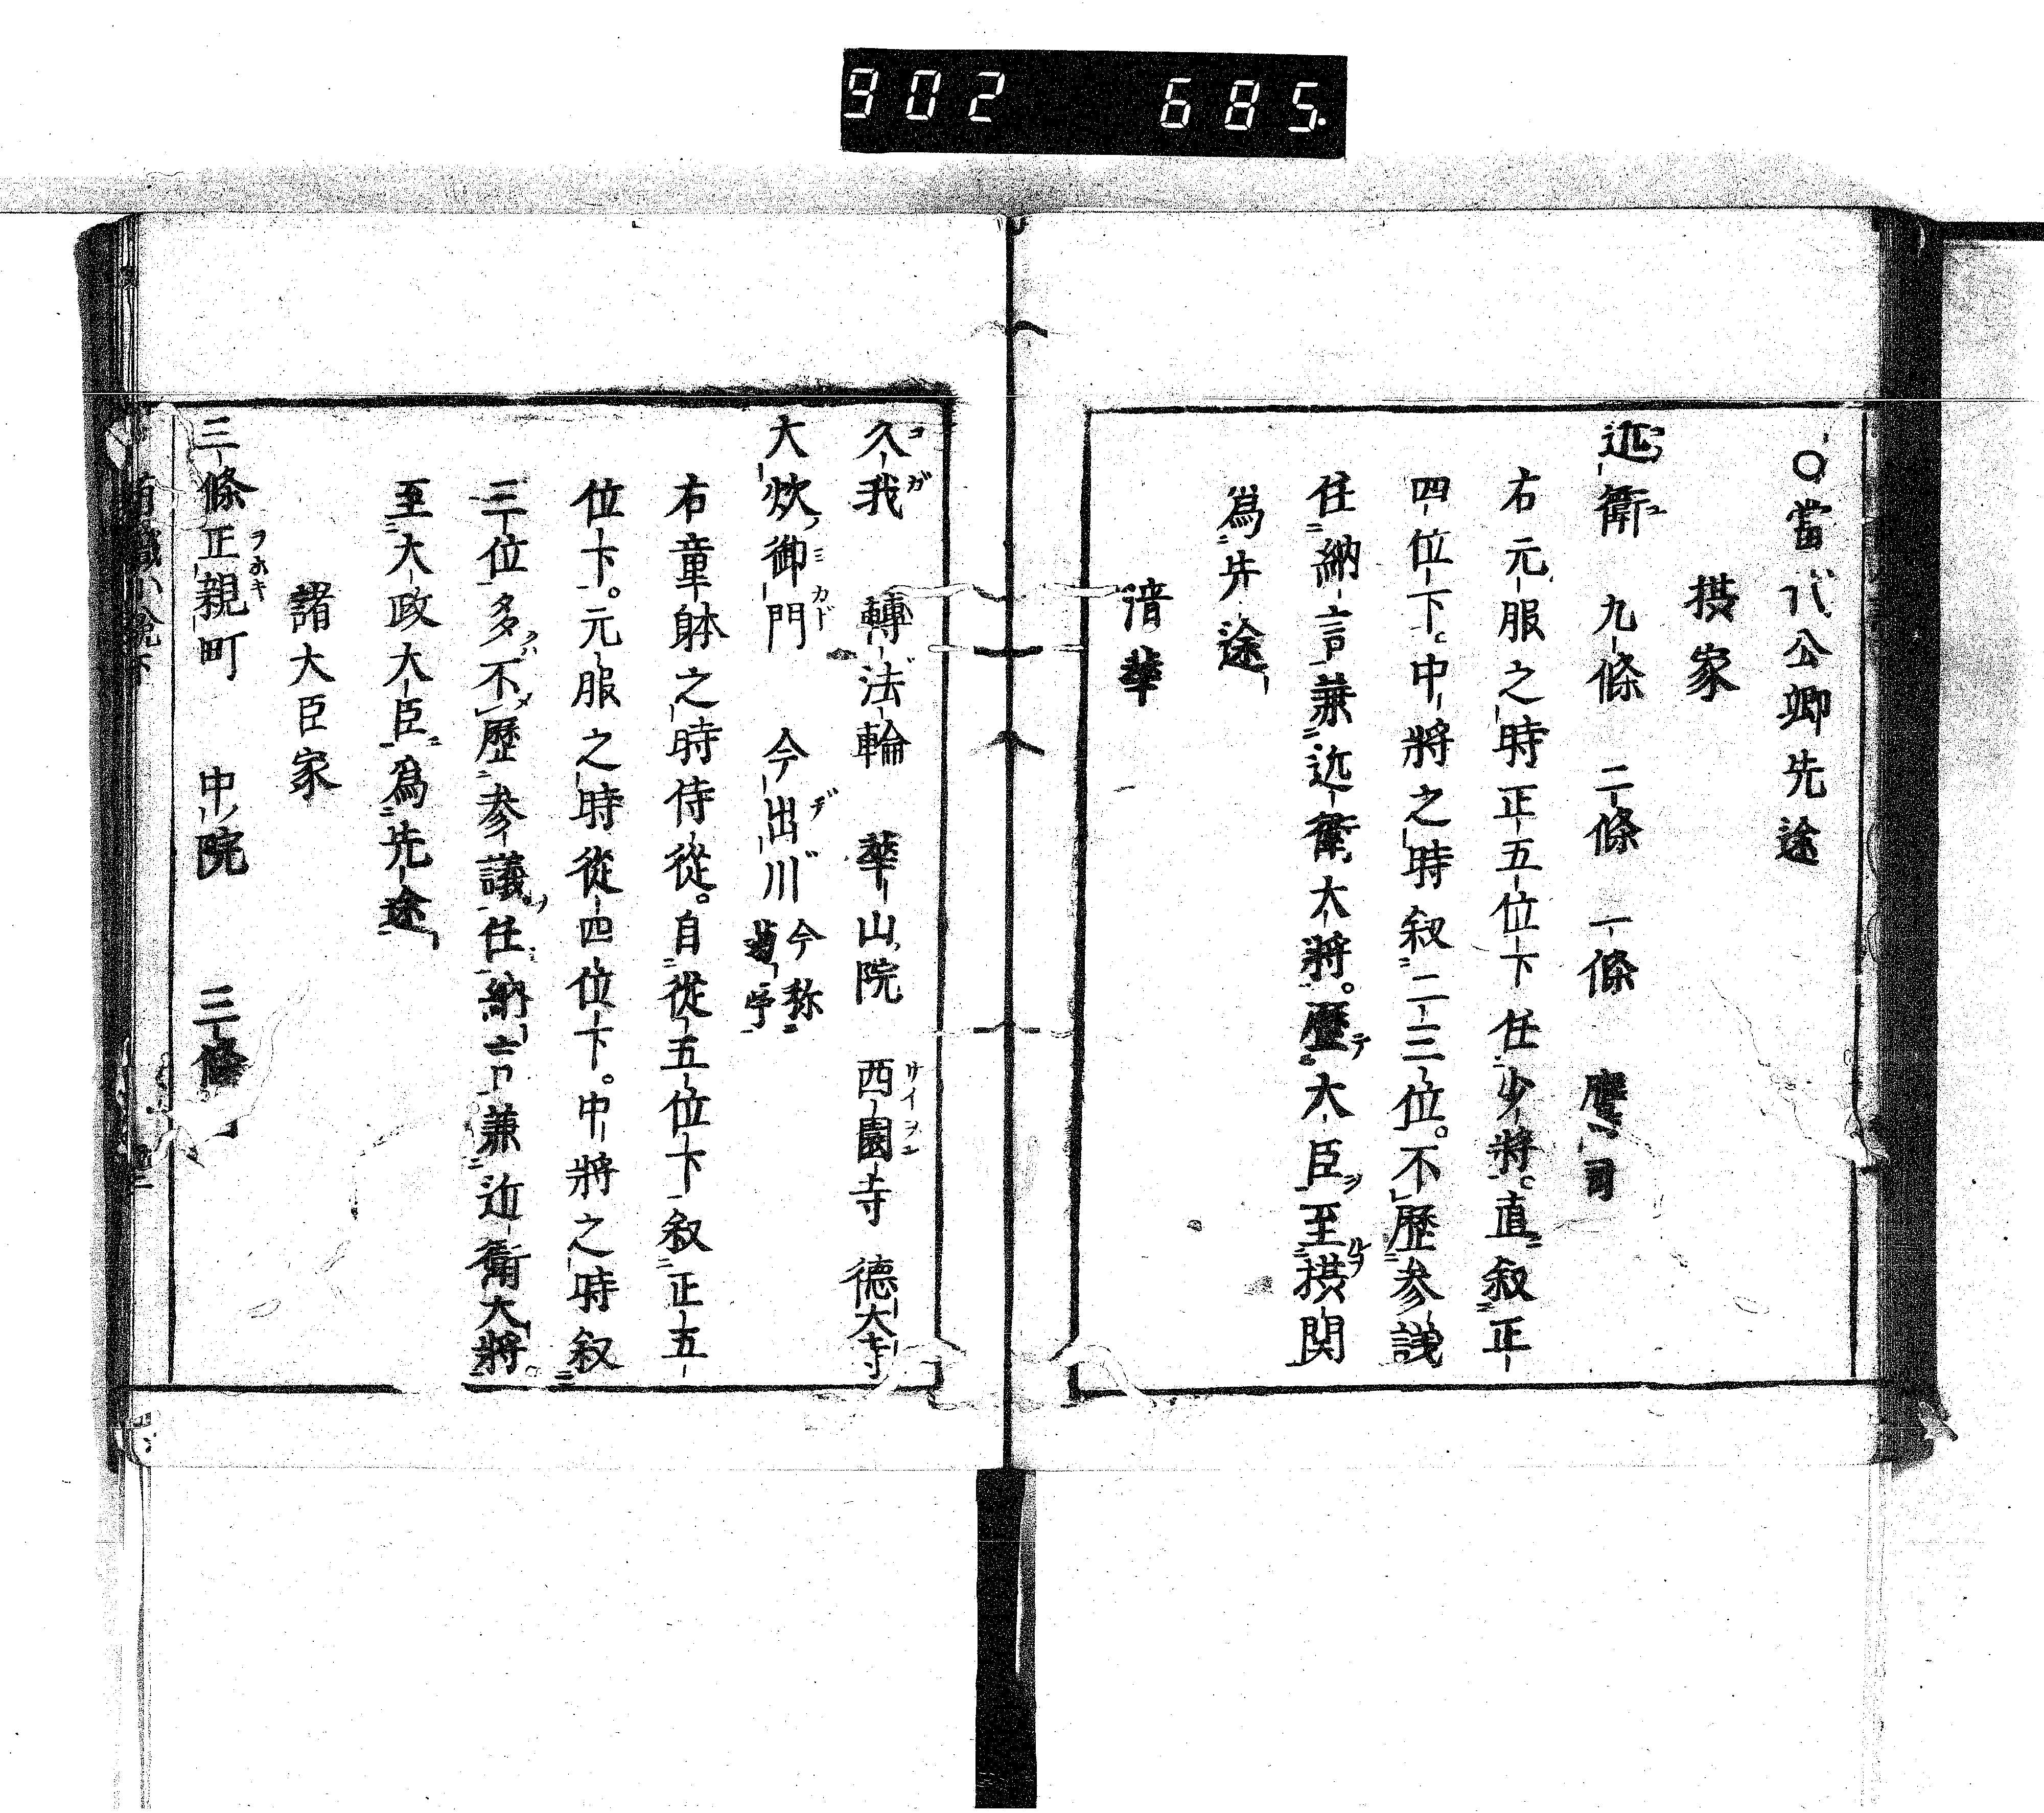 902 685.
○當代公卿先途
摂家
近衛 九條 二條 一條 鷹司
右元服之時正五位下任少將。直叙正
四位下。中將之時叙二三位。不歴参議
任納言兼近衛大將。歴大臣至摂関
爲先途
清華
久我 轉法輪 華山院 西園寺 德大寺
大炊御門 今出川 今称菊亭
右童躰之時侍從。自從五位下叙正五
位下。元服之時從四位下。中將之時叙
三位多不歴参議任納言兼近衛大將。
至大政大臣爲先途
諸大臣家
三條正親町 中院 三條